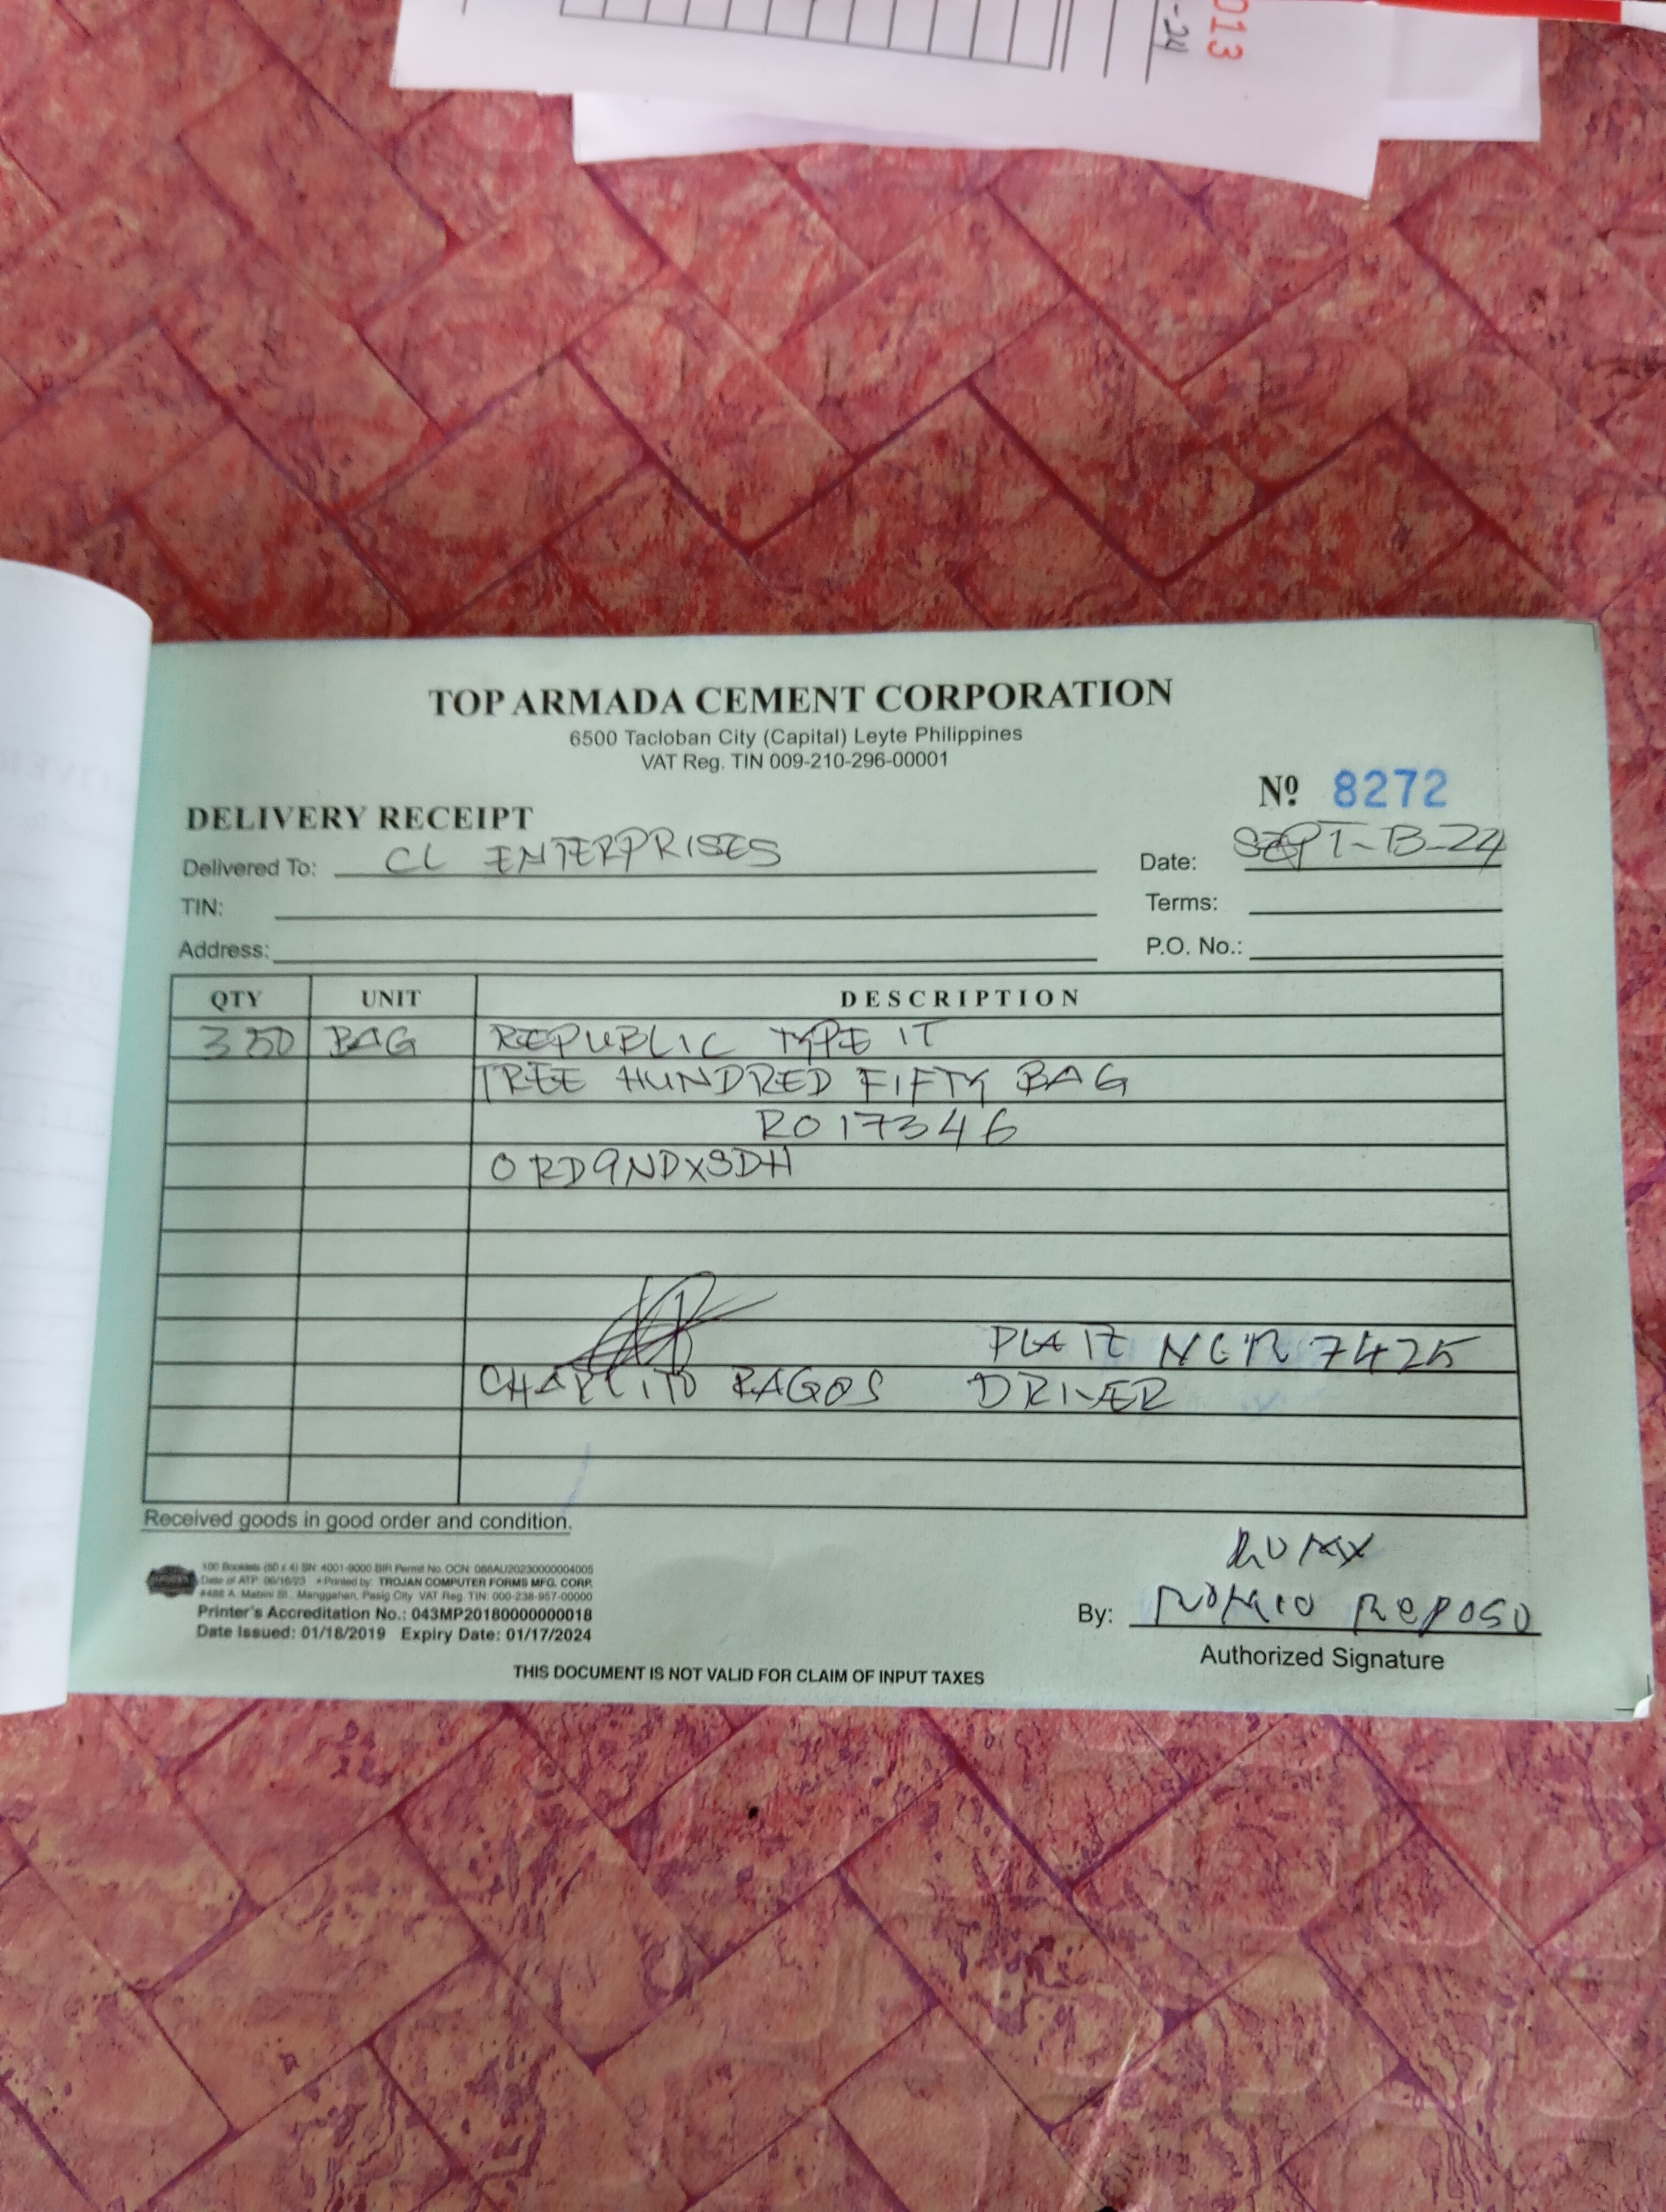 013
-24
TOP ARMADA CEMENT CORPORATION
6500 Tacloban City (Capital) Leyte Philippines
VAT Reg. TIN 009-210-296-00001
Nº 8272
DELIVERY RECEIPT
Delivered To: CL ENTERPRISES
Date: SEPT-13-24
TIN:
Terms:
Address:
P.O. No.:
QTY UNIT DESCRIPTION
350 BAG REPUBLIC TYPE 1T
TREE HUNDRED FIFTY BAG
RO 17346
ORD9NDXSDH
PLATE 7425
CHARLITO BAGOS DRIVER
Received goods in good order and condition.
100 Booklets (50 x 4) SN: 4001-9000 BIR Permit No. OCN: 088AU20230000004005
Date of ATP: 06/16/23 * Printed by: TROJAN COMPUTER FORMS MFG. CORP.
#486 A. Mabini St., Manggahan, Pasig City VAT Reg. TIN: 000-238-957-00000
Printer's Accreditation No.: 043MP20180000000018
Date Issued: 01/18/2019 Expiry Date: 01/17/2024
By: REPOSO
Authorized Signature
THIS DOCUMENT IS NOT VALID FOR CLAIM OF INPUT TAXES